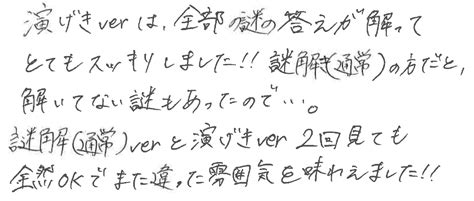 演げきverは、全部の謎の答えが解って
とてもスッキリしました!! 謎解き(通常)の方だと、
解いてない謎もあったので…。
謎解(通常)verと演げきver 2回見ても
全然OKでまた違った雰囲気を味わえました!!